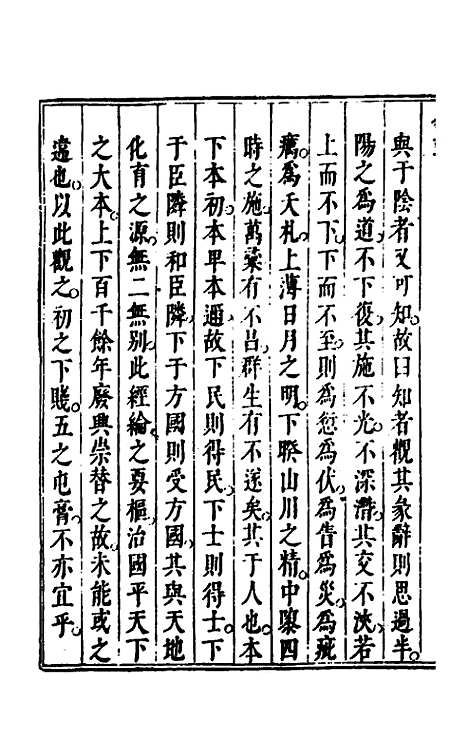 與于陰者又可知故曰知者觀其彖辭則思過半
陽之爲道不下復其施不光不深潛其交不浹若
上而不下下而不至則爲愆爲伏爲告爲災爲疵
癘爲夭札上薄日月之明下睽山川之精中隳四
時之施萬彙有不昌群生有不遂矣其于人也本
下本初本卑本邇故下民則得民下士則得士下
于臣隣則和臣隣下于方國則受方國其與天地
化有之源無二無别此經綸之要樞治國平天下
之大本上下百千餘年廢興崇替之故未能或之
違也以此觀之初之下賤五之屯膏不亦宜乎